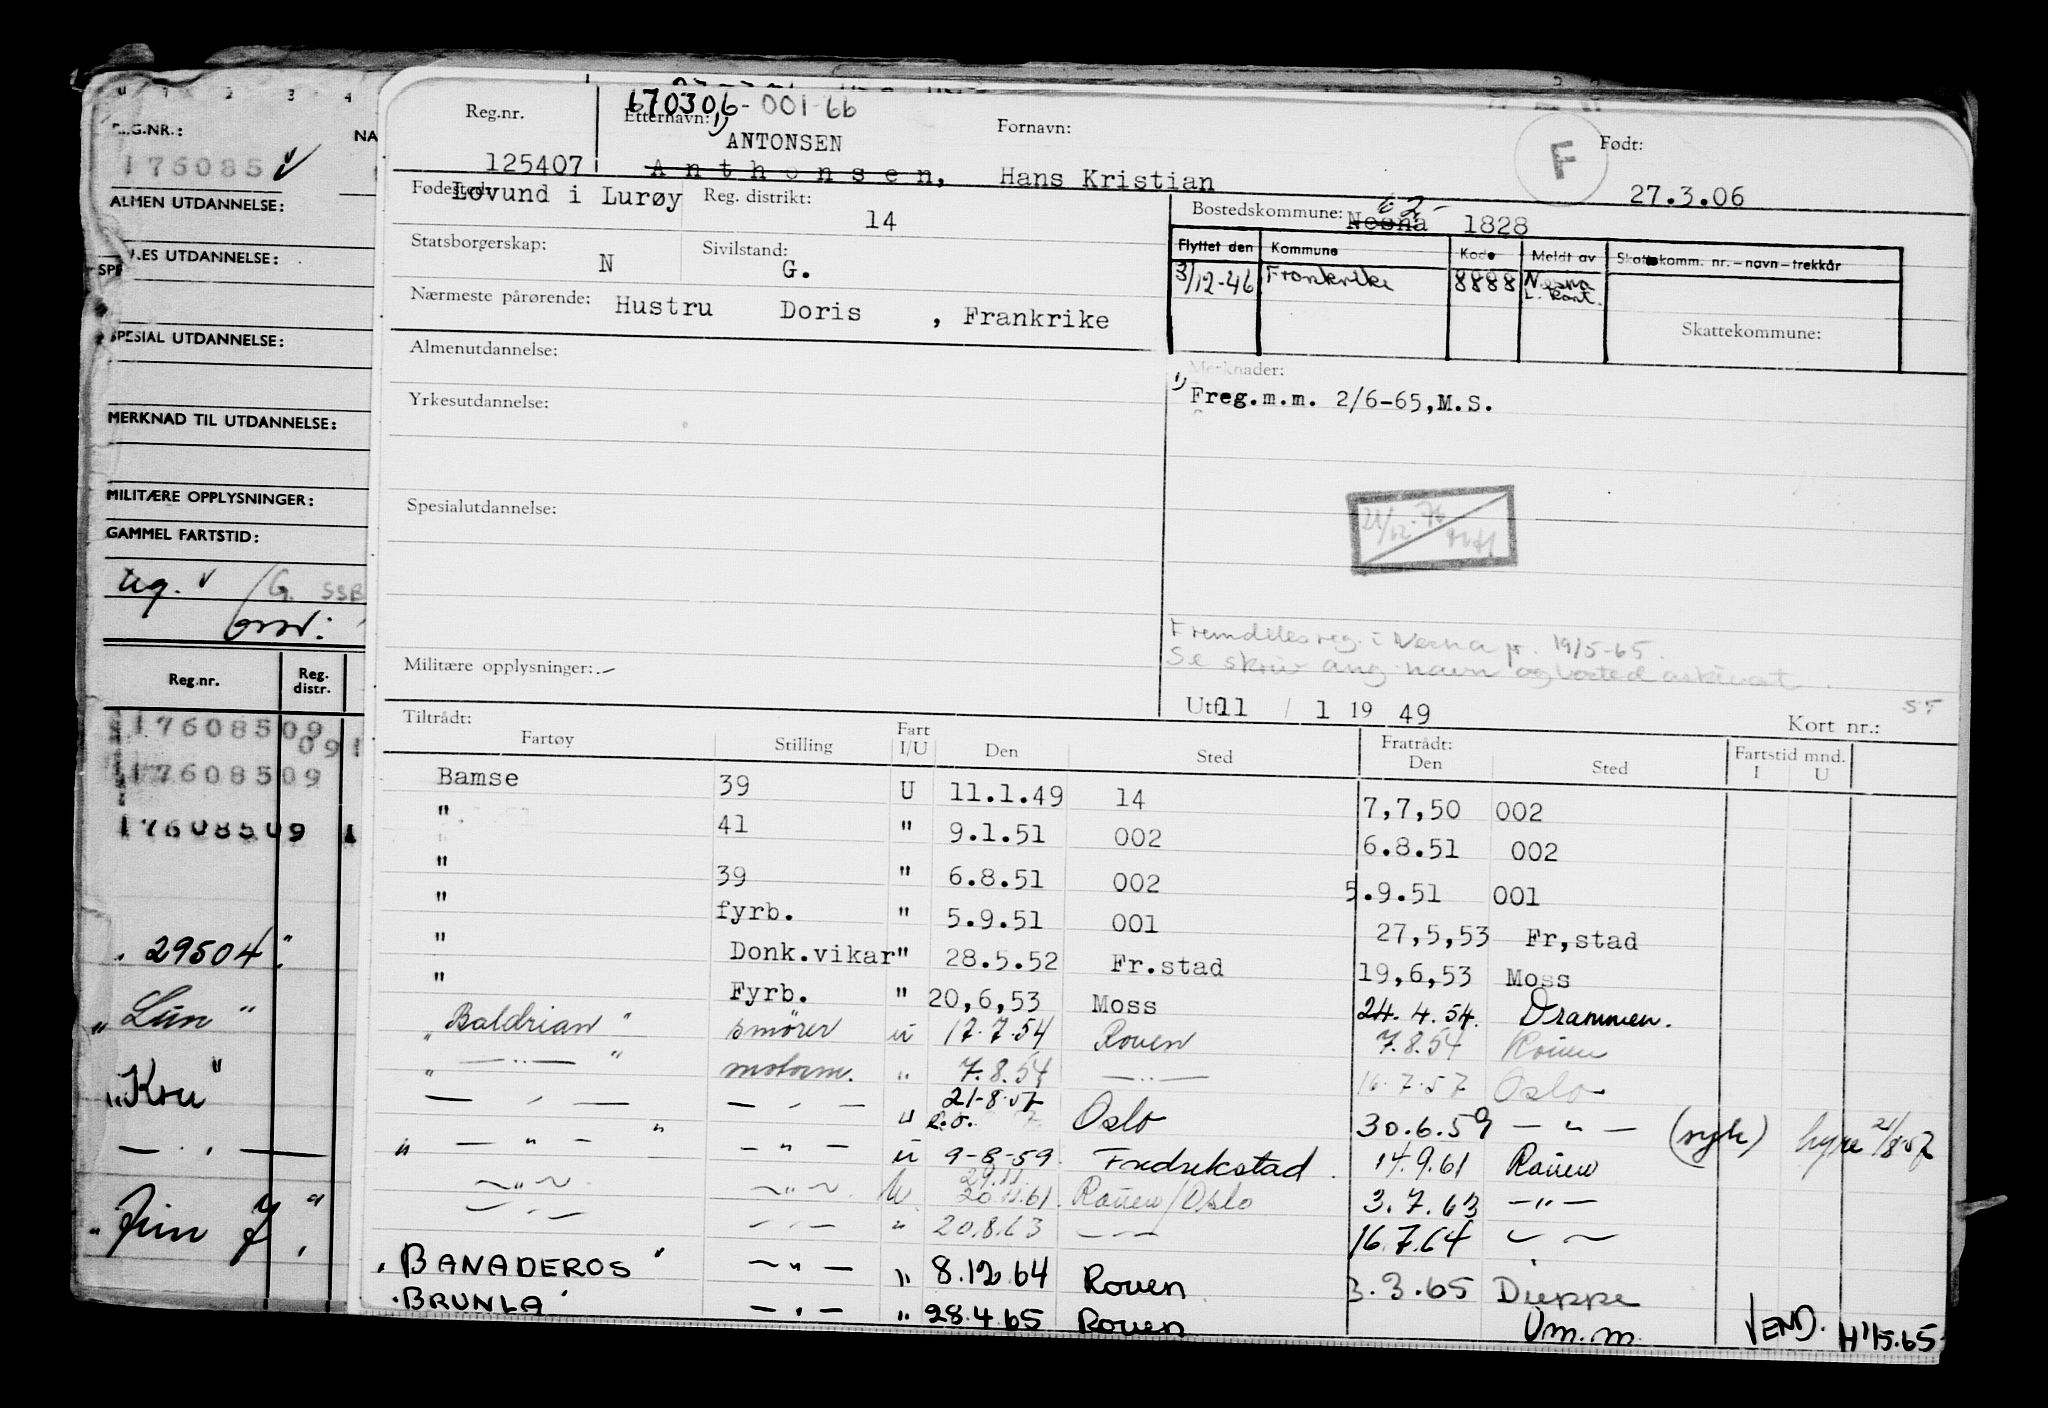 REG.NR.: NA
176085 v
ALMEN UTDANNELSE:
LES UTDANNELSE:
SPESIAL UTDANNELSE:
MERKNAD TIL UTDANNELSE:
MILITÆRE OPPLYSNINGER:
GAMMEL FARTSTID:
G. SSB
Reg.nr. Reg. distr.
17608509
091
17608509
17608509 1
. 29504 "
"Kru"
Reg.nr. 125407
170306-001-66
Etternavn: 1) Fornavn: Født:
ANTONSEN
Anthonsen, Hans Kristian F 27.3.06
Fødested: Lovund i Lurøy Reg. distrikt: 14
Bostedskommune: Nesna 62- 1828
Statsborgerskap: N Sivilstand: G.
Flyttet den Kommune Kode Meldt av Skattekomm. nr.-navn-trekkår
3/12-46 Frankrike 8888 Nesna L. kont.
Skattekommune:
Nærmeste pårørende: Hustru Doris , Frankrike
Almenutdannelse:
Merknader:
1) Freg.m.m. 2/6-65,M.S.
Yrkesutdannelse:
Spesialutdannelse:
Fremdeles reg. i Nesna pr. 19/5-65.
Se skriv ang. navn og bosted arkivert.
Militære opplysninger: -
Utf. 11 / 1 19 49 Kort nr.:
Tiltrådt: Fratrådt: Fartstid mnd.
Fartøy Stilling Fart I/U Den Sted Den Sted I U
Bamse 39 U 11.1.49 14 7,7,50 002
" 41 " 9.1.51 002 6.8.51 002
" 39 " 6.8.51 002 5.9.51 001
" fyrb. " 5.9.51 001 27,5,53 Fr,stad
" Donk.vikar " 28.5.52 Fr.stad 19,6,53 Moss
" Fyrb. " 20,6,53 Moss 24.4.54. Drammen.
"Baldrian" smører u 17.7.54 Rouen 7.8.54 Rouen
" —..— " motorm. " 7.8.54 —..— 16.7.57 Oslo
— . — — . — " 21-8-57 Oslo 30.6.59 — " — (syk) hyre 21/8-57
" — " — " — " — u 9-8-59. Fredrikstad. 14.9.61 Rouen
~ " ~ ~ " ~ u 29.11. 20.11.61. Rouen/Oslo 3.7.63 — " —
— . — — . — " 20.8.63 — — 16.7.64 ~ ~
"BANADEROS" — " — " 8.12.64 Rouen 3.3.65 Dieppe
"BRUNLA" — . — " 28.4.65 Rouen Om.m. VEND. H 1/5.65